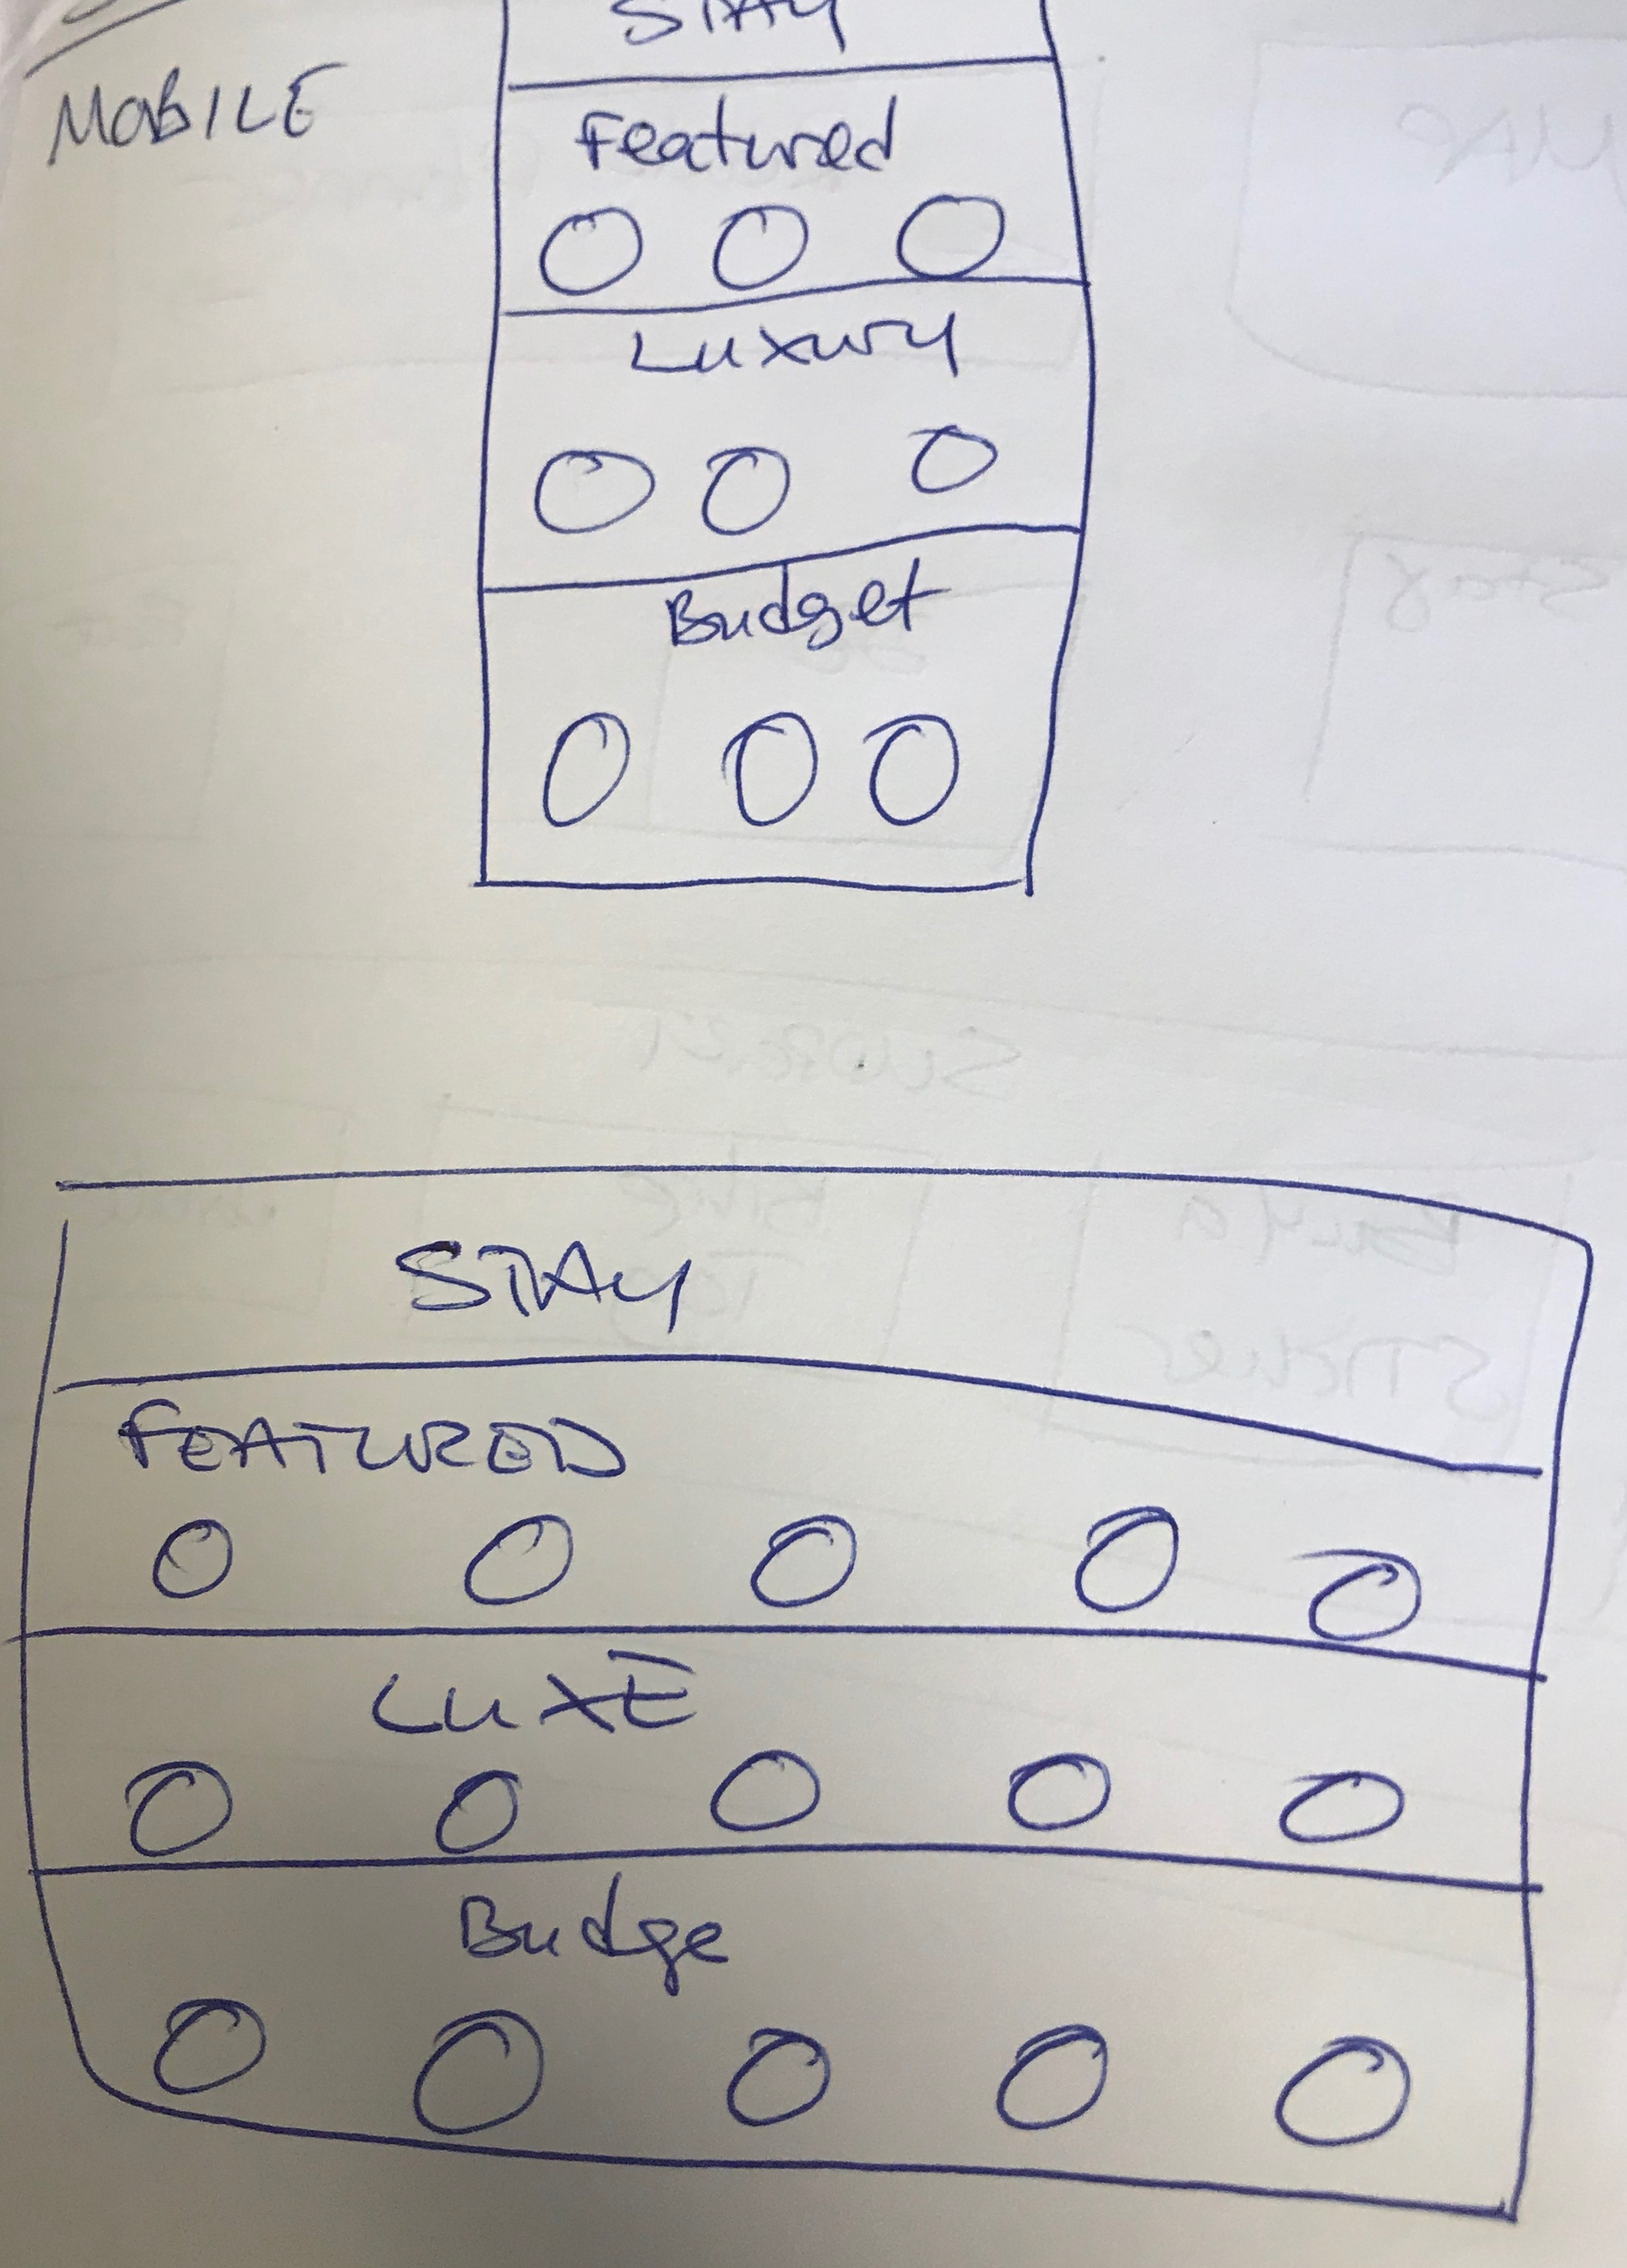 STAY
MOBILE
Featured
Luxury
Budget
STAY
FEATURED
LUXE
Budge